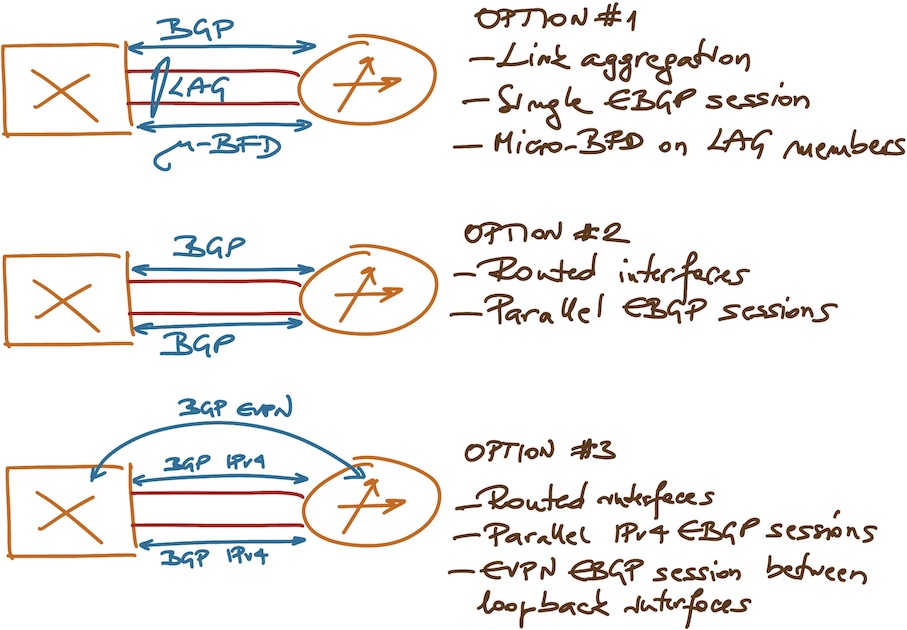 BGP
LAG
μ-BFD
OPTION #1
- Link aggregation
- Single EBGP session
- Micro-BFD on LAG members
BGP
BGP
OPTION #2
- Routed interfaces
- Parallel EBGP sessions
BGP EVPN
BGP IPv4
BGP IPv4
OPTION #3
- Routed interfaces
- Parallel IPv4 EBGP sessions
- EVPN EBGP session between
loopback interfaces